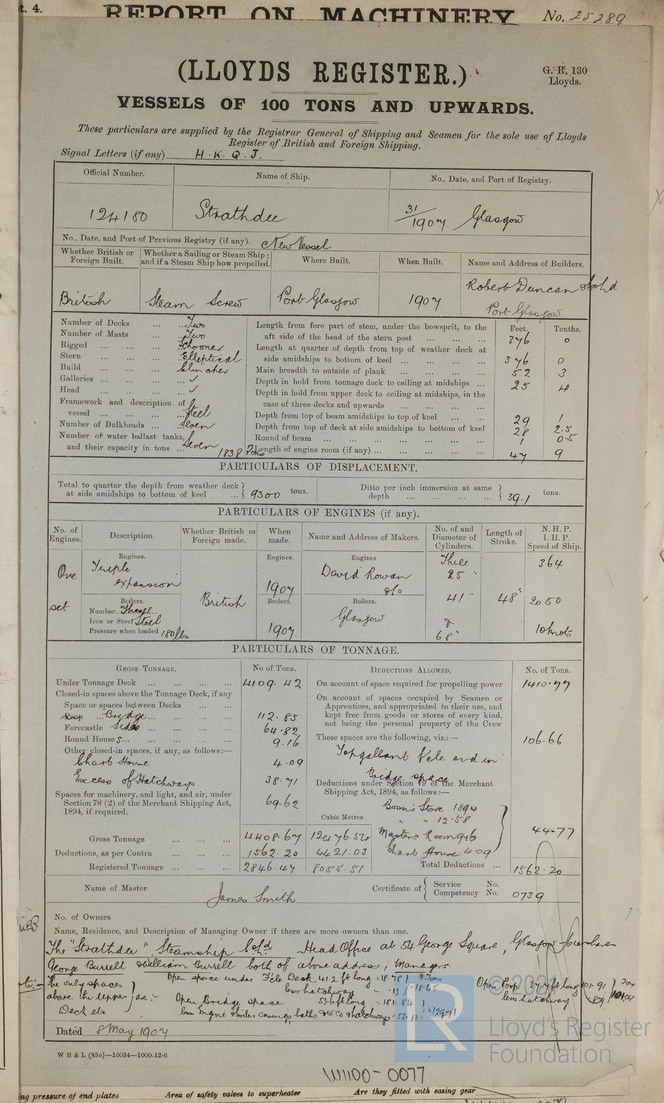 t. 4.
REPORT ON MACHINERY
No. 25289
(LLOYDS REGISTER.)
G. R. 130
Lloyds.
VESSELS OF 100 TONS AND UPWARDS.
These particulars are supplied by the Registrar General of Shipping and Seamen for the sole use of Lloyds
Register of British and Foreign Shipping.
Signal Letters (if any) H. K. Q. J.
Official Number. Name of Ship. No., Date, and Port of Registry.
124180 Strathdee 31/1907 Glasgow
No., Date, and Port of Previous Registry (if any). New Vessel
Whether British or Foreign Built. Whether a Sailing or Steam Ship; and if a Steam Ship how propelled. Where Built. When Built. Name and Address of Builders.
British Steam Screw Port Glasgow 1907 Robert Duncan & Co Ld
Port Glasgow
Number of Decks ... Two
Number of Masts ... Two
Rigged ... Schooner
Stern ... Elliptical
Build ... Clincher
Galleries ... ✓
Head ... ✓
Framework and description of vessel ... Steel
Number of Bulkheads ... Seven
Number of water ballast tanks, and their capacity in tons ... Seven 1838 Tons
Feet. Tenths.
Length from fore part of stem, under the bowsprit, to the aft side of the head of the stern post ... 376 0
Length at quarter of depth from top of weather deck at side amidships to bottom of keel ... 376 0
Main breadth to outside of plank ... 52 3
Depth in hold from tonnage deck to ceiling at midships ... 25 4
Depth in hold from upper deck to ceiling at midships, in the case of three decks and upwards ...
Depth from top of beam amidships to top of keel ... 29 1
Depth from top of deck at side amidships to bottom of keel 28 2.5
Round of beam ... 1 0.5
Length of engine room (if any) ... 47 9
PARTICULARS OF DISPLACEMENT.
Total to quarter the depth from weather deck at side amidships to bottom of keel ... 9300 tons.
Ditto per inch immersion at same depth ... 39.1 tons.
PARTICULARS OF ENGINES (if any).
No. of Engines. Description. Whether British or Foreign made. When made. Name and Address of Makers. No. of and Diameter of Cylinders. Length of Stroke. N.H.P. I.H.P. Speed of Ship.
Engines. Engines. Engines
One set Triple expansion British 1907 David Rowan & Co Three 25 41 48" 364
Boilers. Boilers. Boilers. 2050
Number Three
Iron or Steel Steel Glasgow
Pressure when loaded 180 lbs 1907 68" 10 knots
PARTICULARS OF TONNAGE.
GROSS TONNAGE. No of Tons.
Under Tonnage Deck ... 4109.42
Closed-in spaces above the Tonnage Deck, if any
Space or spaces between Decks ...
Poop ... Bridge ... 112.85
Forecastle Sides ... 64.82
Round House s ... 9.16
Other closed-in spaces, if any, as follows:—
Chart House 4.09
Excess of Hatchways 38.71
Spaces for machinery, and light, and air, under Section 78 (2) of the Merchant Shipping Act, 1894, if required. 69.62
Cubic Metres
Gross Tonnage 4408.67 12476.54
Deductions, as per Contra ... 1562.20 4421.03
Registered Tonnage ... 2846.47 8055.51
DEDUCTIONS ALLOWED. No. of Tons.
On account of space required for propelling power 1410.77
On account of spaces occupied by Seamen or Apprentices, and appropriated to their use, and kept free from goods or stores of every kind, not being the personal property of the Crew
These spaces are the following, viz.:— 106.66
Topgallant Fcle and in
Bridge space
Deductions under Section 79 of the Merchant Shipping Act, 1894, as follows:—
Bosn's Store 18.94
" " 12.58
Master's Room 9.16
Chart House 4.09
44.77
Total Deductions ... 1562.20
Name of Master James Smith
Certificate of { Service No. Competency No. 0739
No. of Owners
Name, Residence, and Description of Managing Owner if there are more owners than one.
The "Strathdee" Steamship Co Ld Head Office at 54 George Square, Glasgow
George Burrell William Burrell both of above address; Managers
the only spaces above the upper Deck etc
Open space under Fcle Deck 41.2 ft long = 18.78
less hatchway = .13 } 18.65
Open Bridge space 53.6 ft long = 181.84
Open Poop 37.4 ft long 101.91
less hatchway
Dated 8 May 1907
W B & L (83o)—10034—1000-12-6
W1100-0077
LR
© 2021
Lloyd's Register
Foundation
ng pressure of end plates
Area of safety valves to superheater
Are they fitted with easing gear